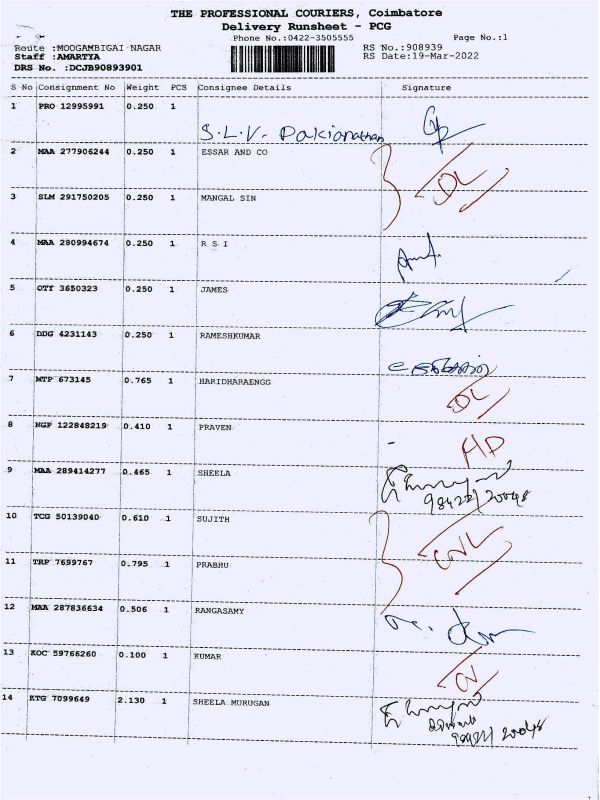 THE PROFESSIONAL COURIERS, Coimbatore
Delivery Runsheet - PCG
Phone No.:0422-3505555 Page No.:1
Route :MOOGAMBIGAI NAGAR RS No.:908939
Staff :AMARTYA RS Date:19-Mar-2022
DRS No. :DCJB90893901
S No Consignment No Weight PCS Consignee Details Signature
1 PRO 12995991 0.250 1
S.L.V. Pakianathan
2 MAA 277906244 0.250 1 ESSAR AND CO
DL
3 SLM 291750205 0.250 1 MANGAL SIN
4 MAA 280994674 0.250 1 R S I
5 OTY 3650323 0.250 1 JAMES
6 DDG 4231143 0.250 1 RAMESHKUMAR
7 MTP 673145 0.765 1 HARIDHARAENGG
DL
8 NGP 122848219 0.410 1 PRAVEN
HD
9 MAA 289414277 0.465 1 SHEELA
10 TCG 50139040 0.610 1 SUJITH
CNL
11 TRP 7699767 0.795 1 PRABHU
12 MAA 287836634 0.506 1 RANGASAMY
13 KOC 59766260 0.100 1 KUMAR
14 KTG 7099649 2.130 1 SHEELA MURUGAN